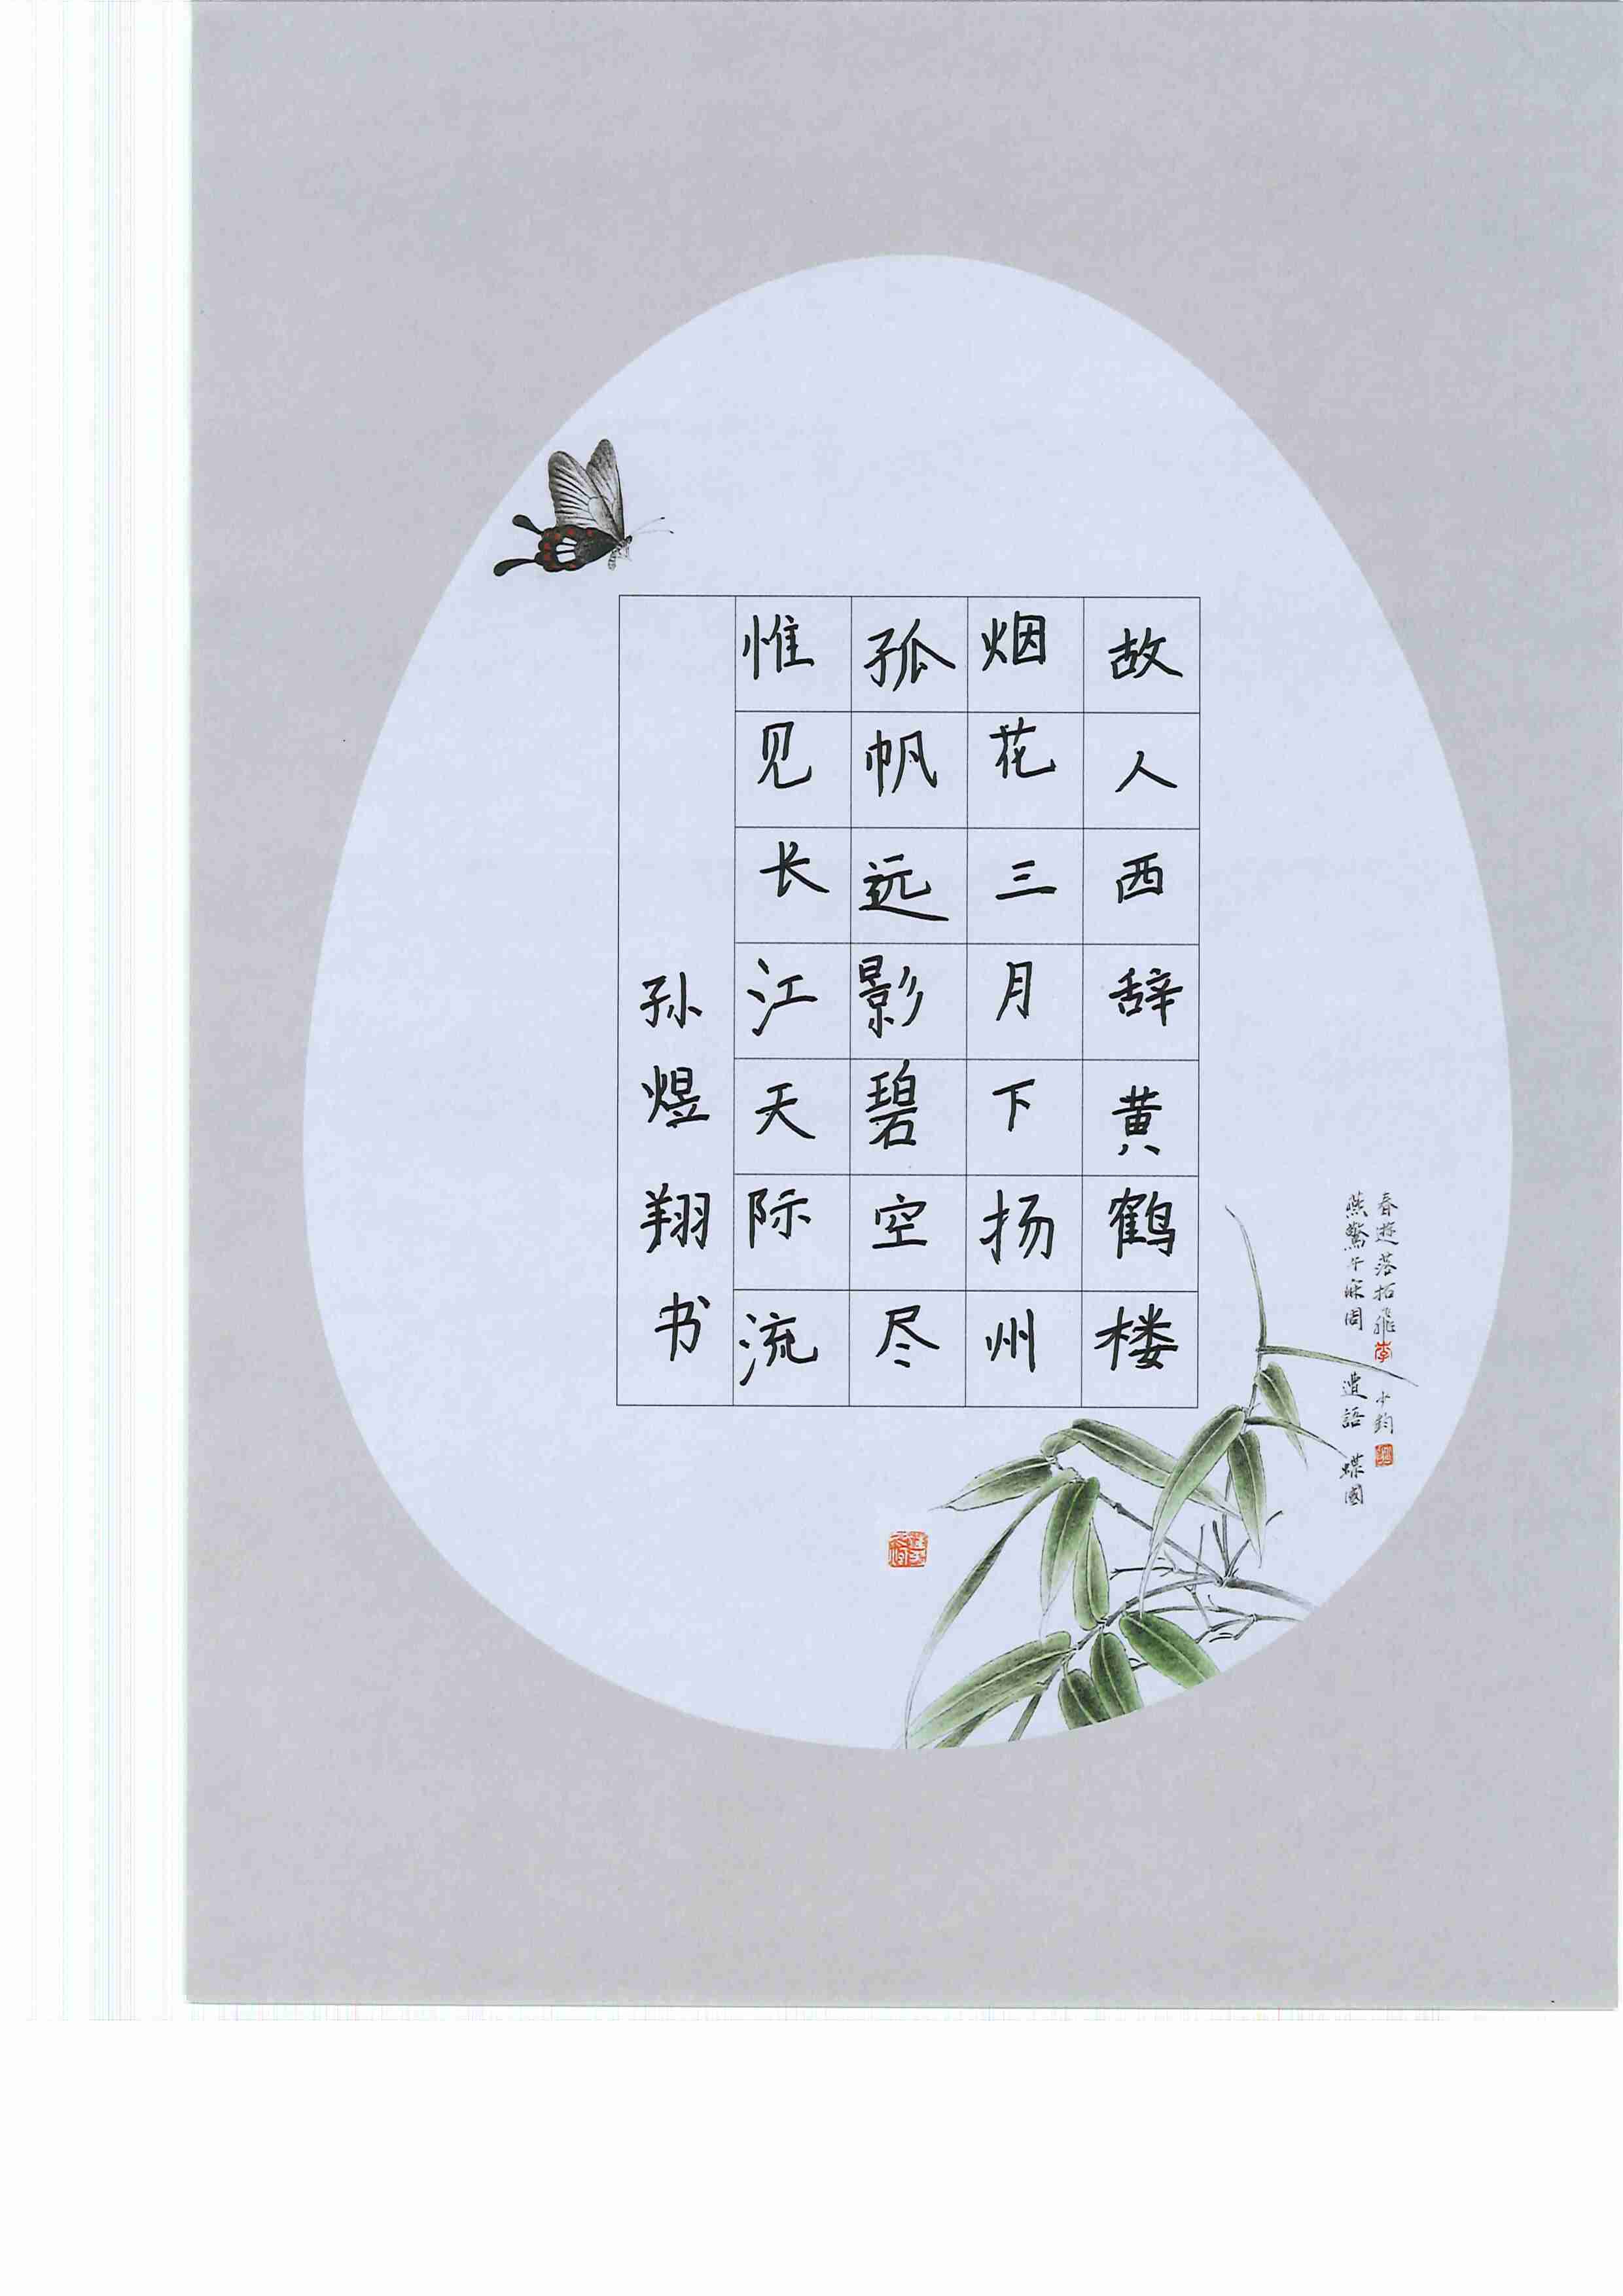 故人西辞黄鹤楼
烟花三月下扬州
孤帆远影碧空尽
惟见长江天际流
孙煜翔书
春遊落拓飛
燕驚午寐周
李
少鈞
遣語
蝶國